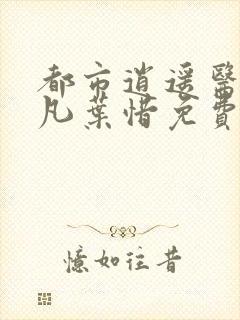 都市逍遥醫
凡葉惜免費
憶如往昔